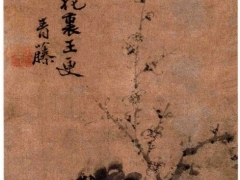 花裏王更
青藤